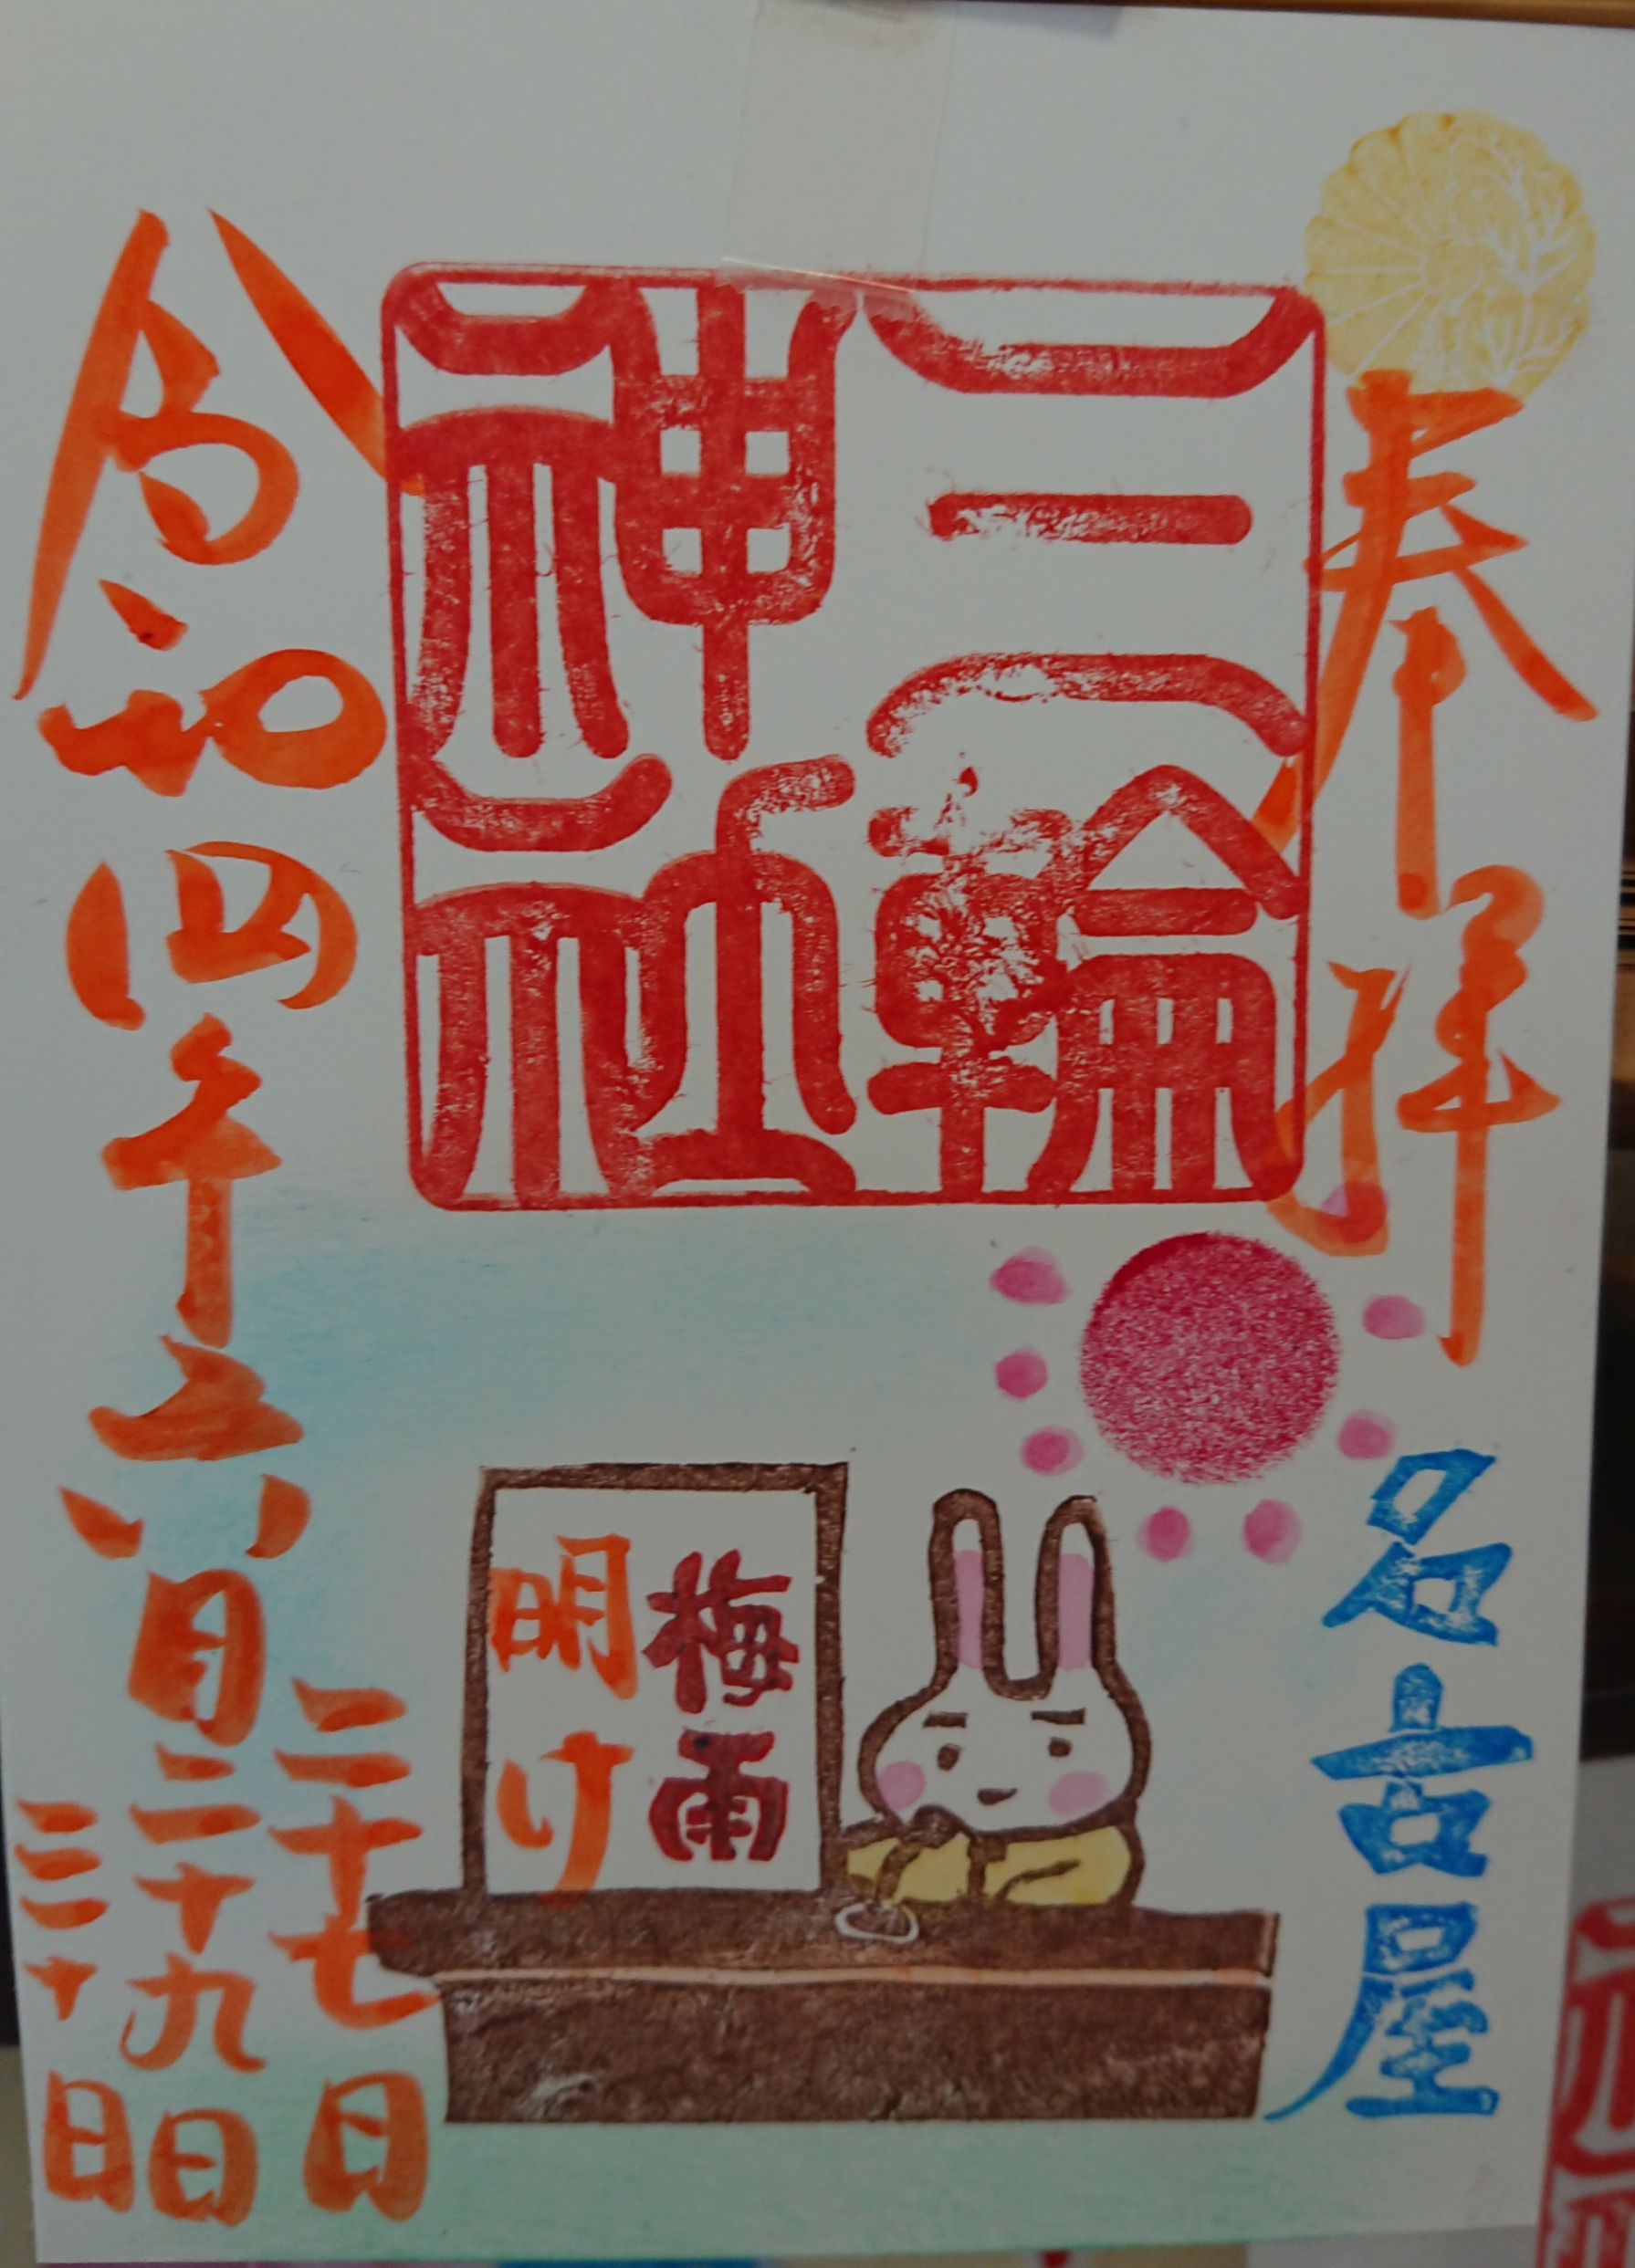 奉拝
名古屋
三輪
神社
梅雨
明け
令和四年六月
二十七日
二十九日
三十日